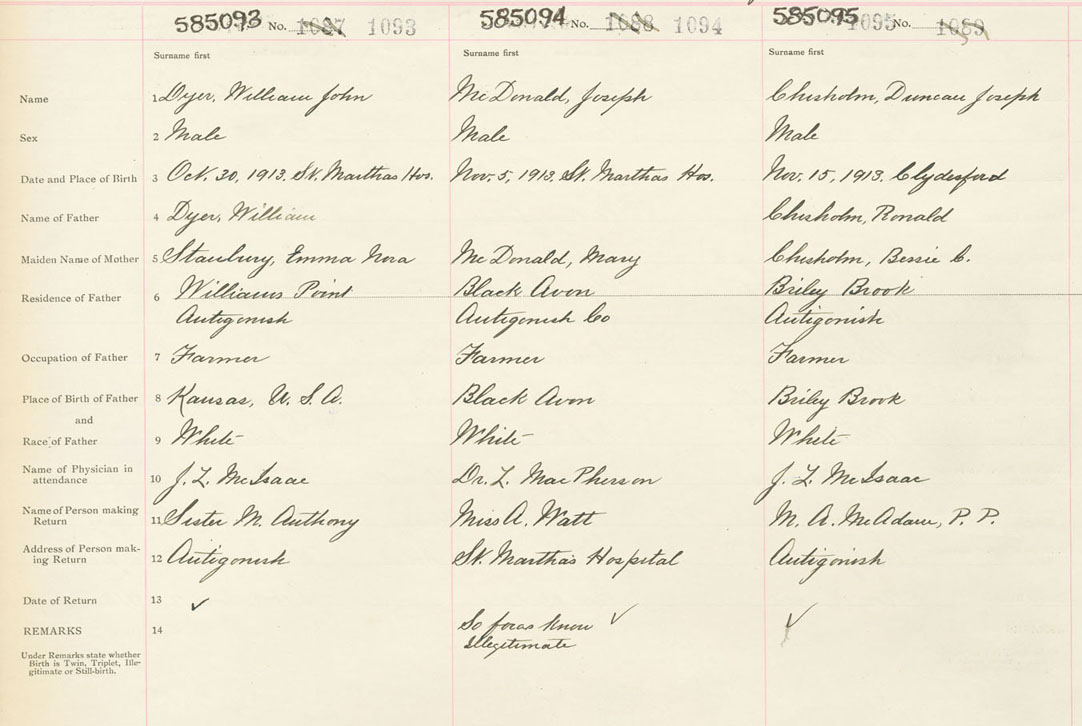 585093 No. 1087 1093 585094 No. 1088 1094 585095 1095 No. 1089
Surname first Surname first Surname first
Name 1 Dyer, William John McDonald, Joseph Chisholm, Duncan Joseph
Sex 2 Male Male Male
Date and Place of Birth 3 Oct. 30, 1913. St. Marthas Hos. Nov. 5, 1913. St. Marthas Hos. Nov. 15, 1913. Clydesford
Name of Father 4 Dyer, William Chisholm, Ronald
Maiden Name of Mother 5 Stanbury, Emma Nora McDonald, Mary Chisholm, Bessie C.
Residence of Father 6 Williams Point Black Avon Briley Brook
Antigonish Antigonish Co Antigonish
Occupation of Father 7 Farmer Farmer Farmer
Place of Birth of Father 8 Kansas, U. S. A. Black Avon Briley Brook
and
Race of Father 9 White White White
Name of Physician in
attendance 10 J. L. McIsaac Dr. L. MacPherson J. L. McIsaac
Name of Person making
Return 11 Sister M. Anthony Miss A. Watt M. A. McAdam, P. P.
Address of Person mak-
ing Return 12 Antigonish St. Martha's Hospital Antigonish
Date of Return 13 ✓
REMARKS 14 So far as know ✓ ✓
Illegitimate
Under Remarks state whether
Birth is Twin, Triplet, Ille-
gitimate or Still-birth.